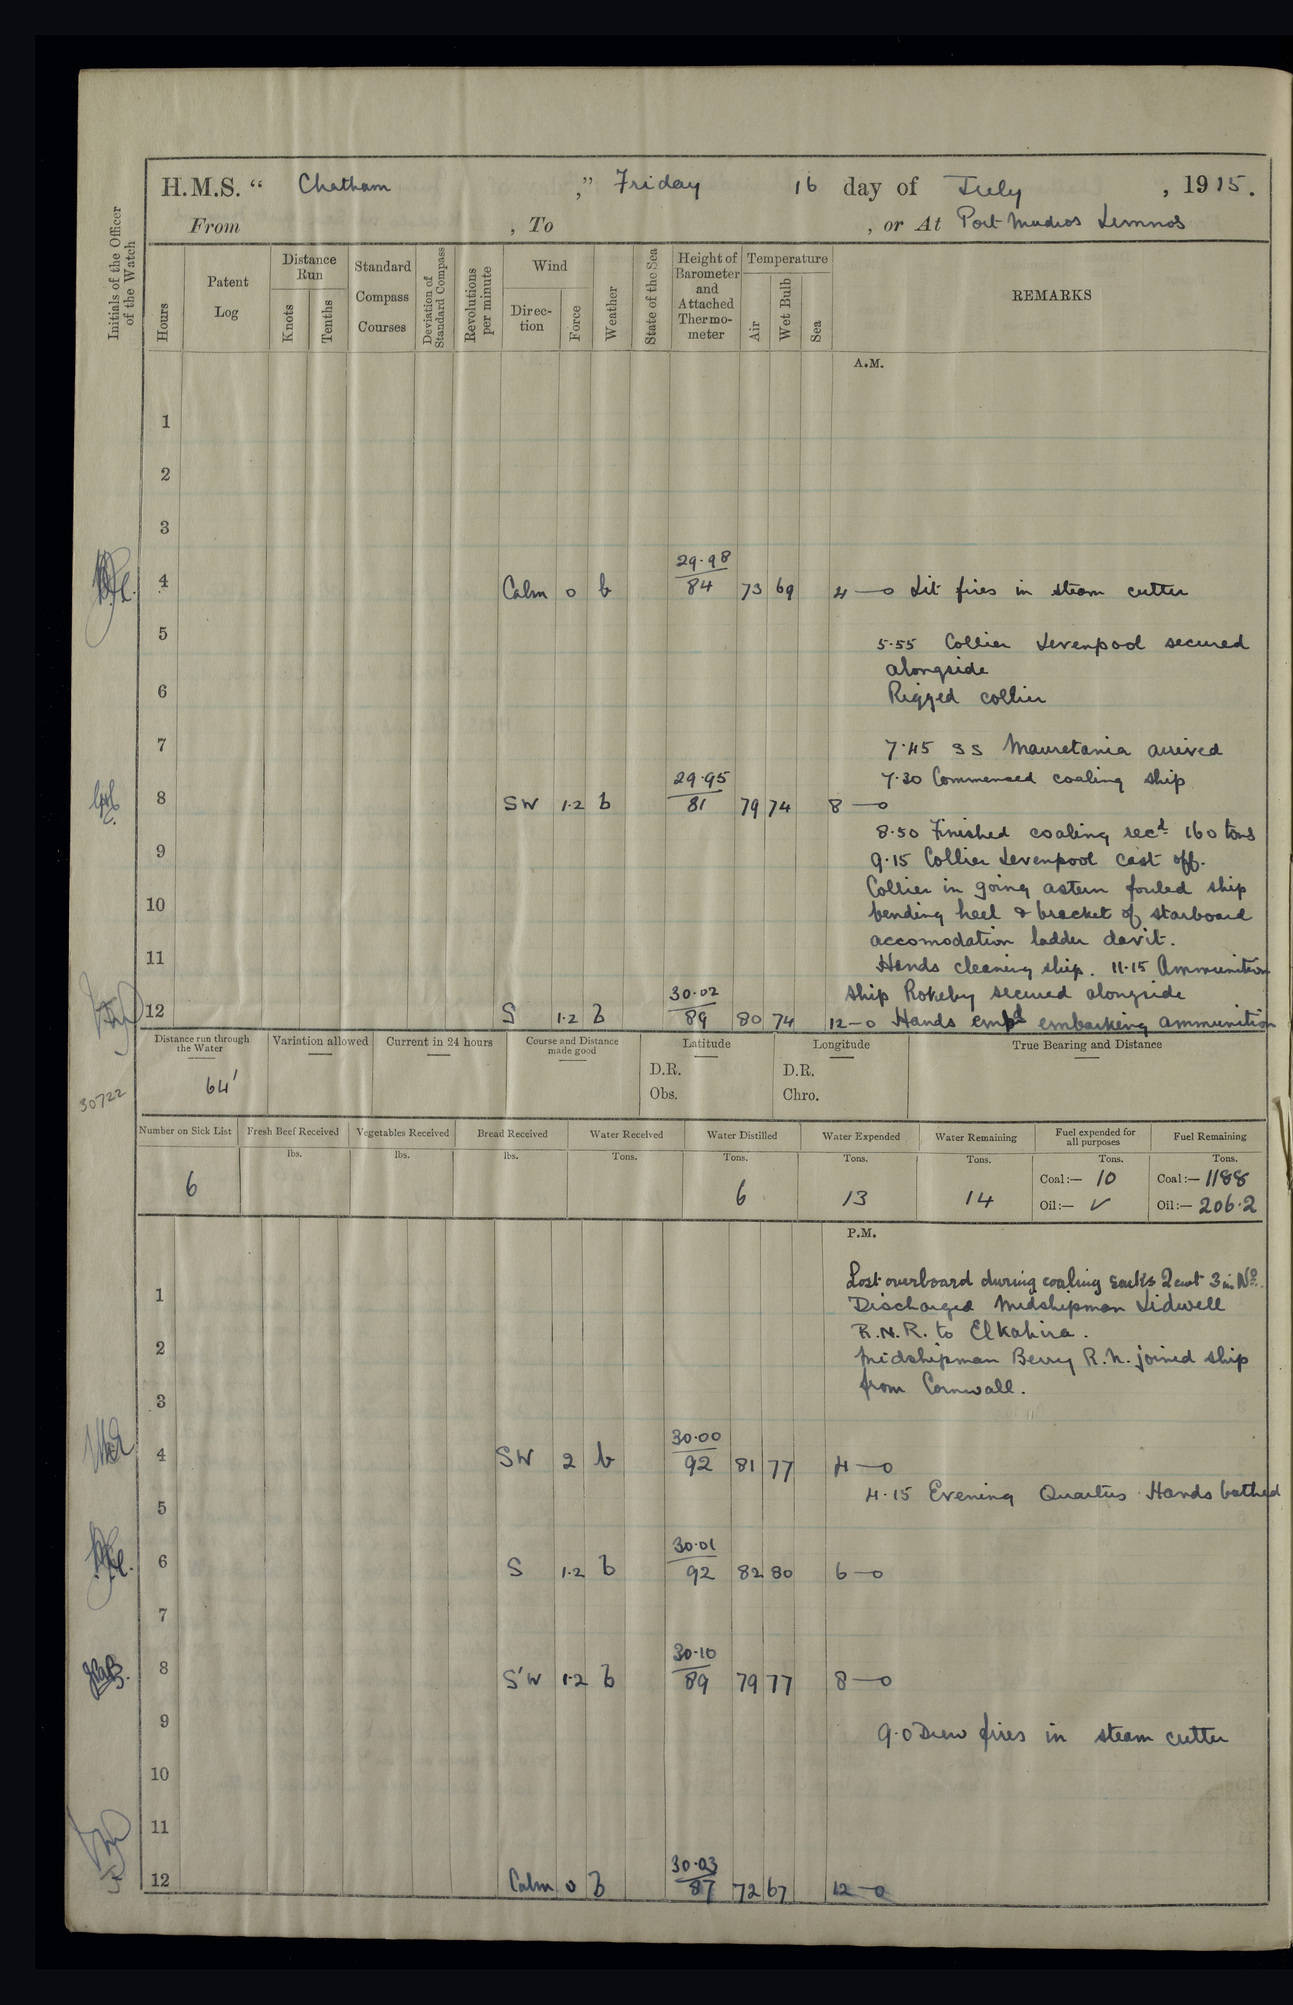 H.M.S. “ Chatham ,” Friday 16 day of July , 1915.
From , To , or At Port Mudros Lemnos
Initials of the Officer of the Watch
Hours
Patent Log
Distance Run
Knots
Tenths
Standard Compass Courses
Deviation of Standard Compass
Revolutions per minute
Wind
Direc-tion
Force
Weather
State of the Sea
Height of Barometer and Attached Thermo-meter
Temperature
Air
Wet Bulb
Sea
REMARKS
A.M.
1
2
3
4 Calm 0 b 29.98 84 73 69 4—0 Lit fires in steam cutter
5 5.55 Collier Levenpool secured
alongside
6 Rigged collier
7 7.45 SS Mauretania arrived
7.30 Commenced coaling ship
8 SW 1.2 b 29.95 81 79 74 8—0
8.50 Finished coaling recd 160 tons
9 9.15 Collier Levenpool cast off.
Collier in going astern fouled ship
10 bending heel & bracket of starboard
accomodation ladder davit.
11 Hands cleaning ship. 11.15 Ammunition
ship Rokeby secured alongside
12 S 1.2 b 30.02 89 80 74 12—0 Hands empd embarking ammunition
Distance run through the Water
Variation allowed
Current in 24 hours
Course and Distance made good
Latitude
Longitude
True Bearing and Distance
64'
D.R.
Obs.
D.R.
Chro.
30722
Number on Sick List
Fresh Beef Received
Vegetables Received
Bread Received
Water Received
Water Distilled
Water Expended
Water Remaining
Fuel expended for all purposes
Fuel Remaining
lbs. lbs. lbs. Tons. Tons. Tons. Tons. Tons. Tons.
6 6 13 14 Coal:— 10 Coal:— 1188
Oil:— ✓ Oil:— 206.2
P.M.
Lost overboard during coaling sacks 2 cwt 3 in No.
1 Discharged Midshipman Lidwell
R.N.R. to El Kahira.
2 Midshipman Berry R.N. joined ship
from Cornwall.
3
4 SW 2 b 30.00 92 81 77 4—0
4.15 Evening Quarters Hands bathed
5
6 S 1.2 b 30.01 92 82 80 6—0
7
8 S'W 1.2 b 30.10 89 79 77 8—0
9 9.0 Drew fires in steam cutter
10
11
12 Calm 0 b 30.03 87 72 67 12—0